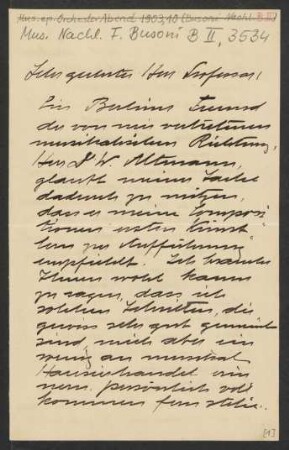 Mus. ep. Orchester Abend 1903,10 (Busoni-Nachl. B II)
Mus. Nachl. F. Busoni B II, 3534
Sehr geehrter Herr Professor!
Ein Berliner Freund
der von mir vertretenen
musikalischen Richtung,
Herr Dr W. Altmann,
glaubt meiner Sache
dadurch zu nützen,
dass er meine Composi
tionen ersten Künst
lern zur Aufführung
empfiehlt. Ich brauche
Ihnen wohl kaum
zu sagen, dass ich
solchen Schritten, die
gewiss sehr gut gemeint
sind, mich aber ein
wenig an musikal.
Hausierhandel erin
nern, persönlich voll
kommen fern stehe.
[1]